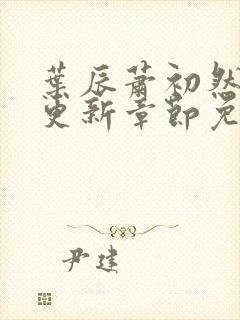 葉辰蕭初然
更新章節免
尹建